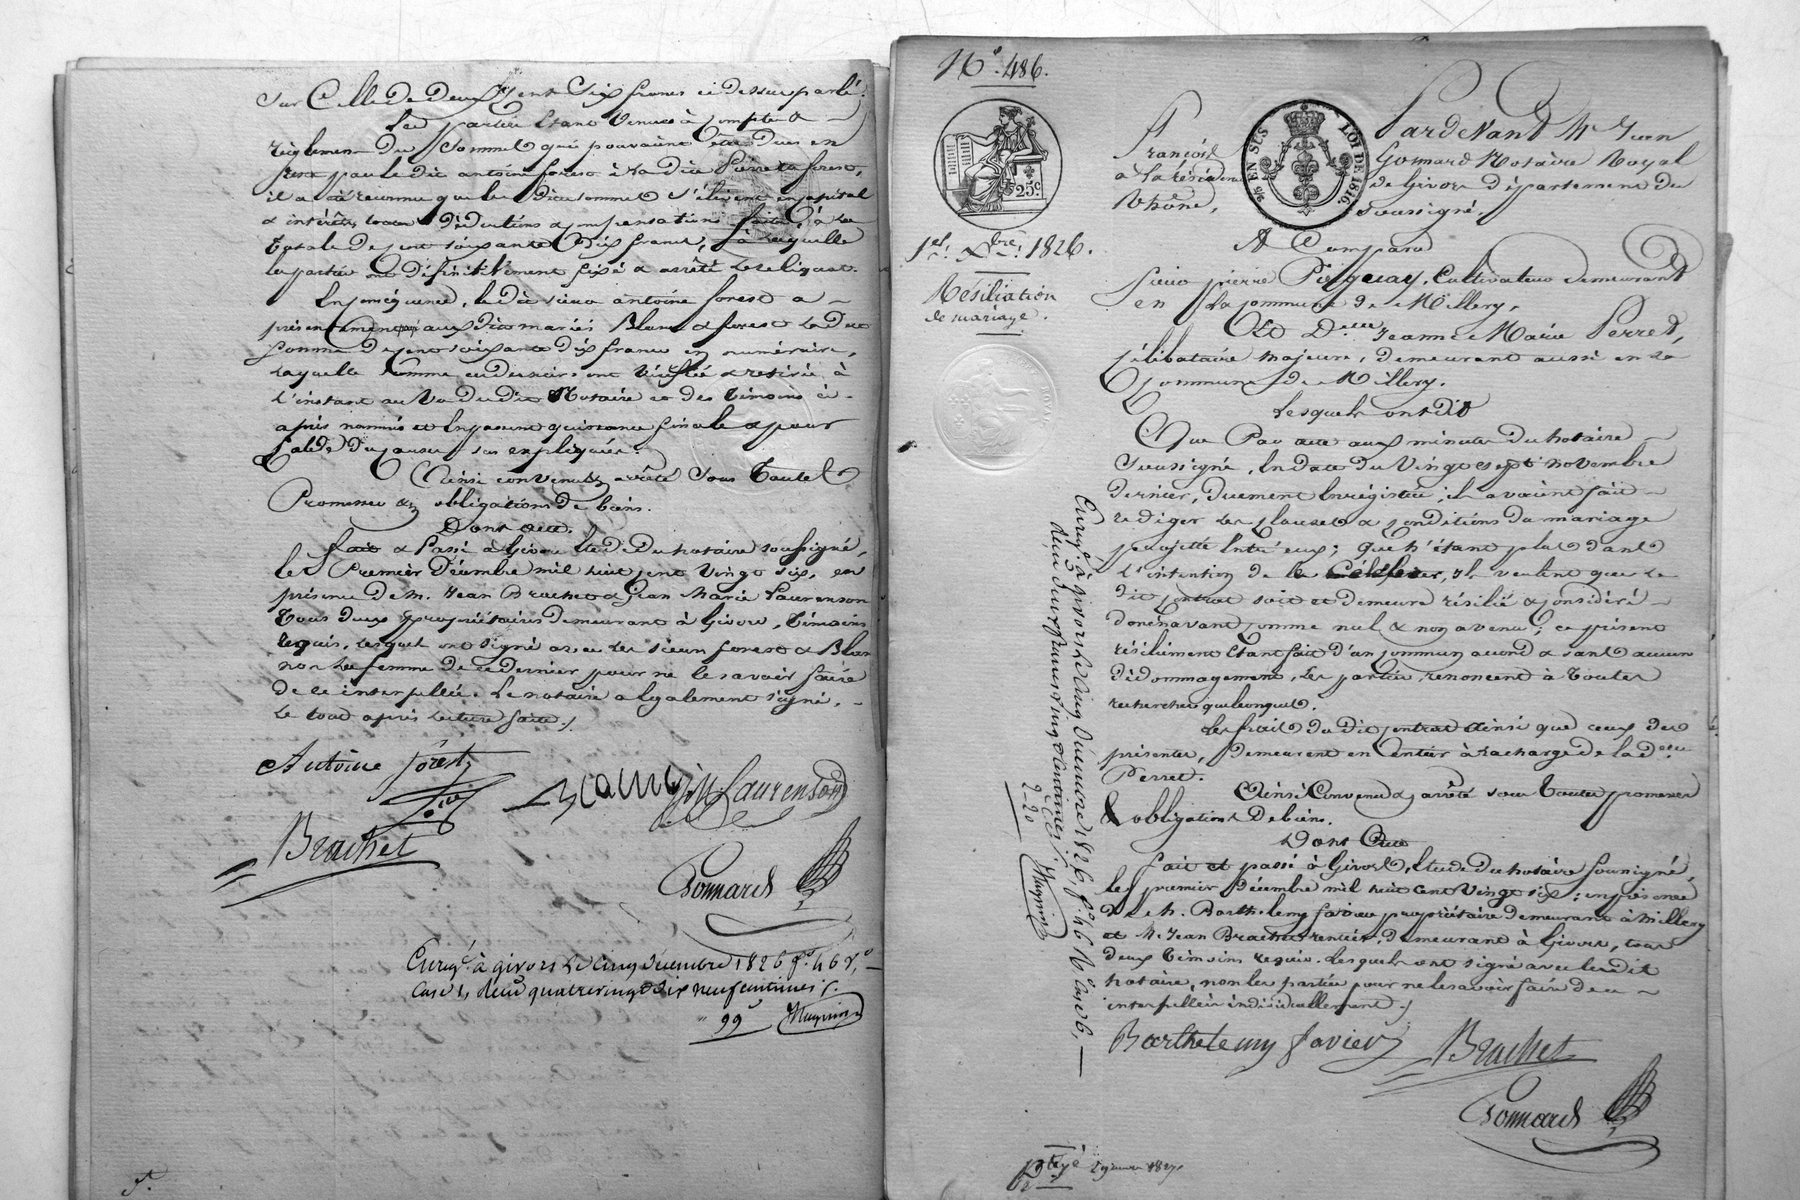 Sur Celle De Deux Cent Six francs ci dessus parlé.
Les parties Etant Venues à Compte &
règlement Des Sommes qui pouvaient être Dues en
par le dit antoine forest à la dite Pierrette forest,
il a été reconnu que les Dites sommes S'élèvent en capital
& intérêts, toutes Déductions & compensations faites, à la
totale De Cent soixante Dix francs, à laquelle
les parties ont Définitivement fixé & arrêté le reliquat.
En conséquence, le dit sieur antoine forest a
présentement aux dits mariés Blanc & forest la Dite
somme De Cent soixante dix francs en numéraire,
laquelle somme ces derniers ont Vérifiée & retirée à
l'instant au Vu du dit Notaire et des Témoins ci-
après nommés et En passent quittance finale & pour
Solde Des causes sus expliquées.
Ainsi convenu & arrêté sous Toutes
Promesses & obligations De biens.
Dont acte.
fait & Passé à Givors Etude Du notaire soussigné,
le Premier Décembre mil huit cent Vingt six, en
présence De M. Jean Brachet & Jean Marie Laurenson
Tous Deux propriétaires demeurant à Givors, Témoins
requis, lesquels ont signé avec les sieurs forest & Blanc
non la femme De ce dernier pour ne le savoir faire
De ce interpellée. Le notaire a également signé,
le tout après lecture faite./.
Antoine forest
J. M. Laurenson
Brachet
Gonnard
Enreg.é à givors le cinq décembre 1826, f.o 46 r.o
case 1, deux quatrevingt dix neuf centimes /.
99c
N.o 486.
25c
2/6 EN SUS
LOI DE 1816.
1er Xbre 1826.
Résiliation
de mariage.
Pardevant Mr Jean
François Gonnard Notaire Royal
à la résidence de Givors Département du
Rhône, soussigné.
A Comparu
sieur pierre Cultivateur demeurant
en la Commune de Millery,
Et D.elle Jeanne Marie Perret,
Célibataire majeure, demeurant aussi en la
Commune de Millery.
Lesquels ont dit
Que Par acte aux minutes du notaire
Soussigné, En date du Vingt sept novembre
dernier, Duement Enregistré; ils avaient fait
rediger les clauses & conditions du mariage
projetté Entr'eux; que n'étant plus dans
l'intention de le Célébrer, ils veulent que le
dit contrat soit et demeure résilié & considéré
Dorénavant comme nul & non avenu; ce présent
résiliment étant fait d'un commun accord & sans aucun
Dédommagement, les parties renoncent à toutes
recherches quelconques.
Les frais Du dit contrat Ainsi que ceux des
présentes, Demeurent en Entier à la charge de la D.elle
Perret.
Ainsi Convenu & arrêté sous toutes promesses
& obligations De biens.
Dont Acte
fait et passé à Givors, Etude du notaire soussigné,
le premier Décembre mil huit cent Vingt six; en présence
De M. Barthelemy favier propriétaire demeurant à Millery
et M. Jean Brachet rentier, demeurant à Givors, tous
deux Témoins requis. Lesquels ont signé avec le dit
notaire, non les parties pour ne le savoir faire de ce
interpellées individuellement./.
Barthelemy favier
Brachet
Gonnard
Enreg.é à givors le cinq décembre 1826, f.o 46 r.o case 6,
deux francs vingt centimes /.
2-20
1827